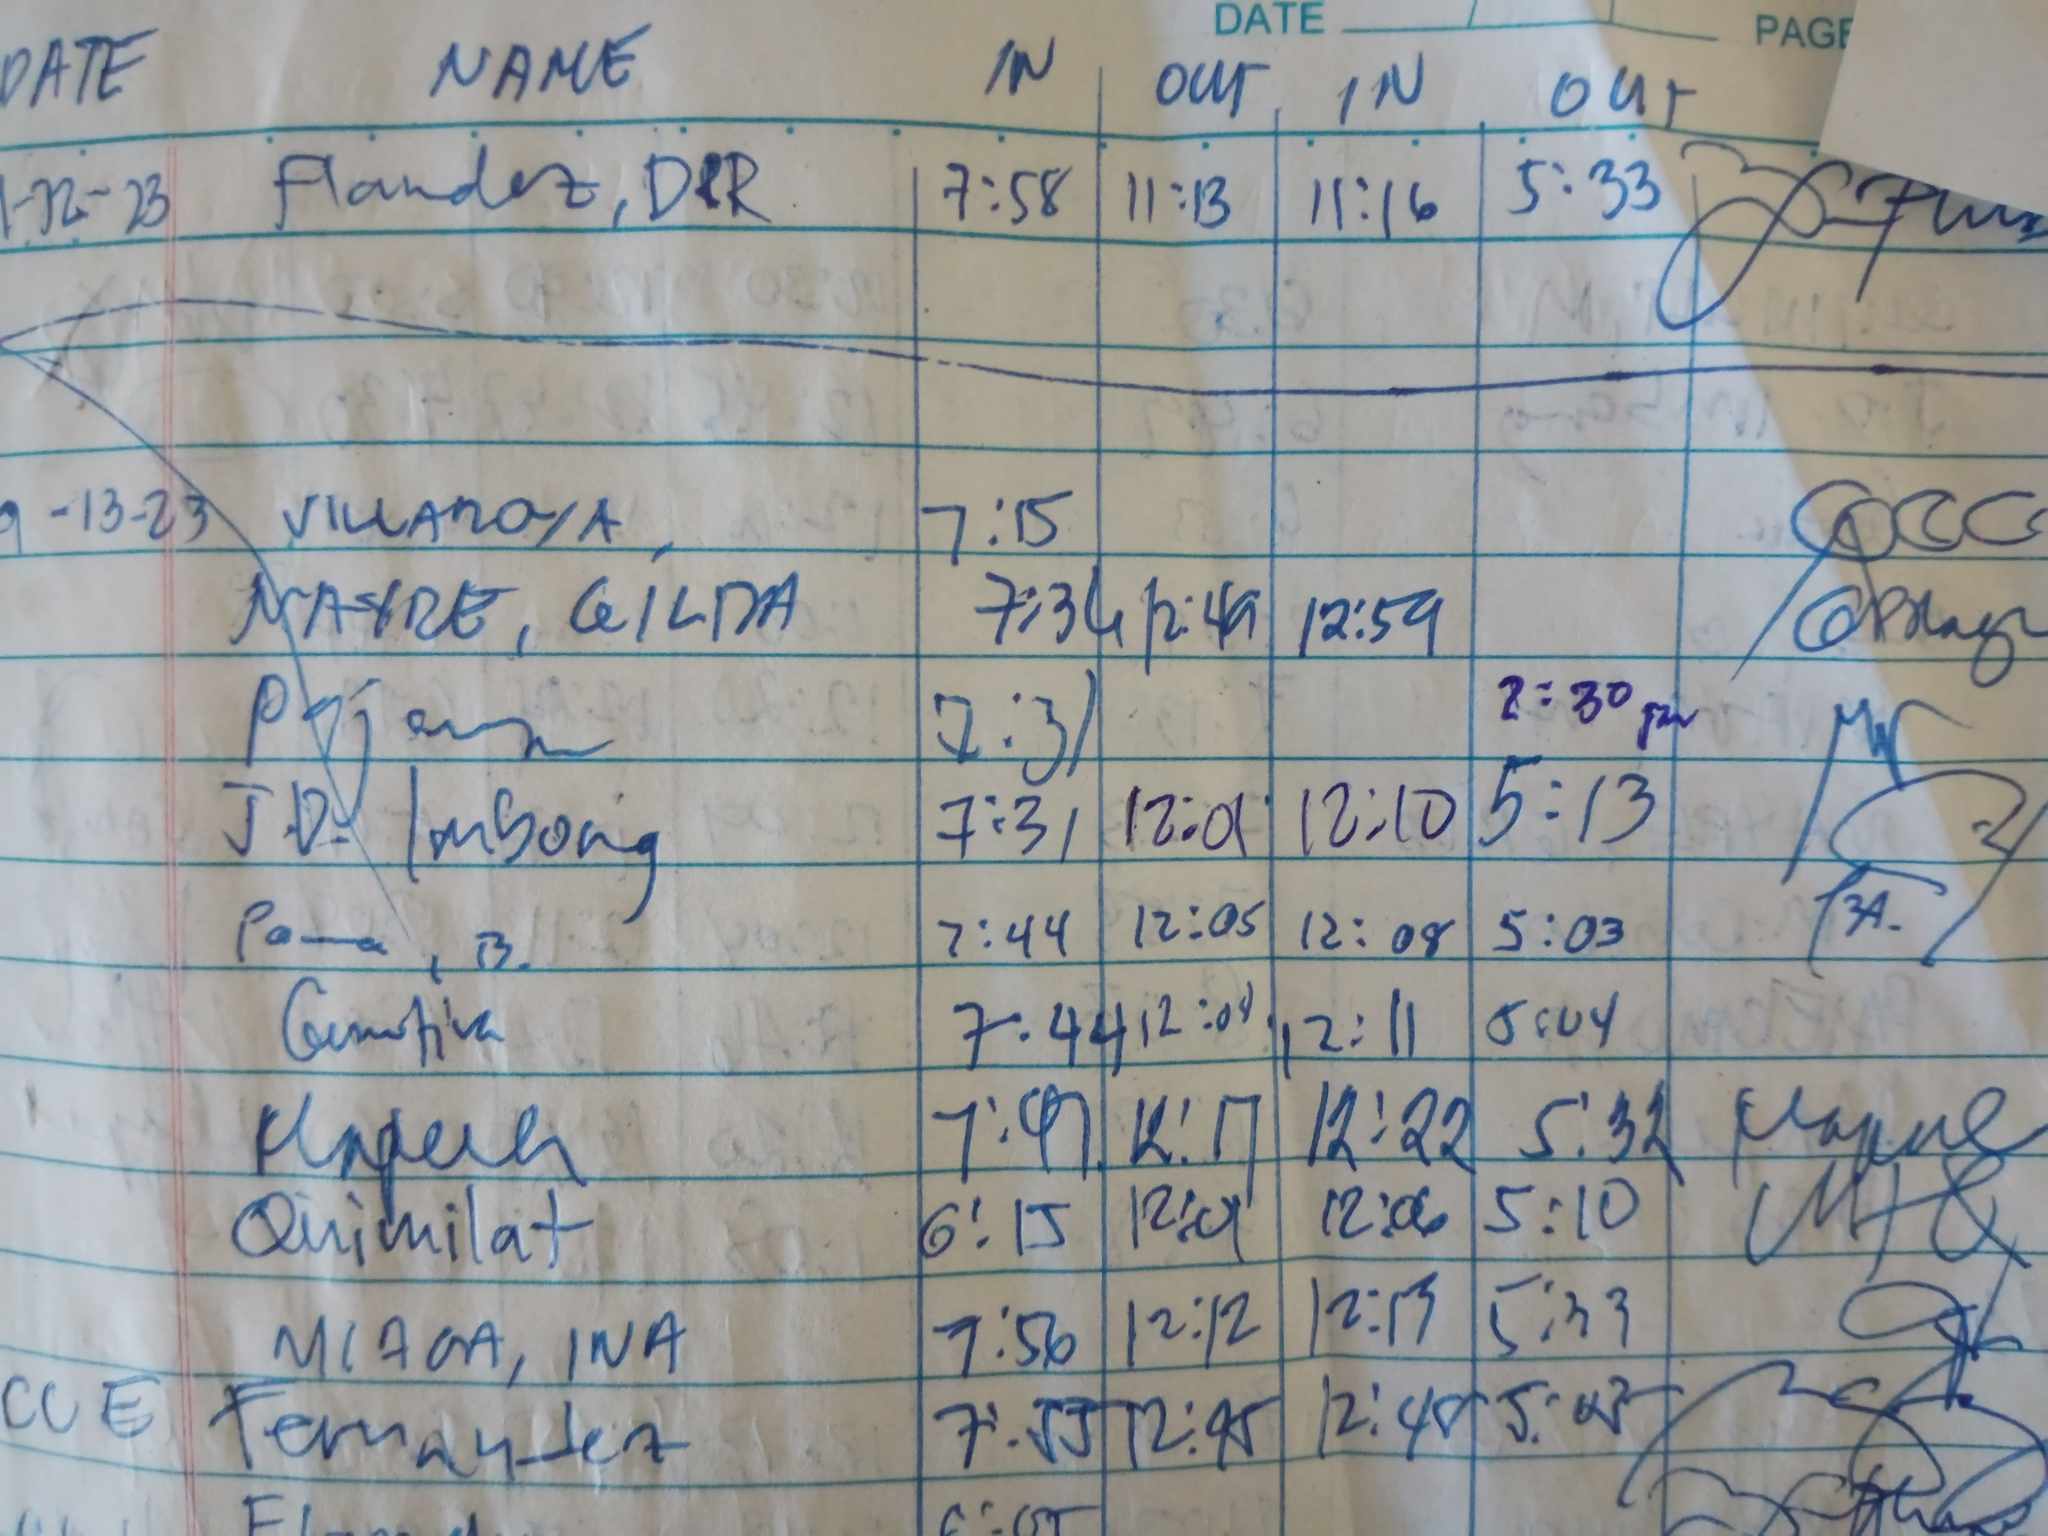 DATE PAGE
DATE NAME IN OUT IN OUT
-12-23 Flandez, DRR 7:58 11:13 11:16 5:33
9-13-23 VILLANOYA, 7:15
NAYRE, GILDA 7:36 12:49 12:59
7:31 2:30 pm
J.D. Imbong 7:31 12:01 12:10 5:13
Pama, B. 7:44 12:05 12:08 5:03
Gumotiva 7:44 12:11 5:04
7:47 12:17 12:22 5:32
Quimilat 6:15 12:01 12:06 5:10
MIAGA, INA 7:56 12:12 12:13 5:33
CCJE Fernandez 7:55 12:45 12:48 5: